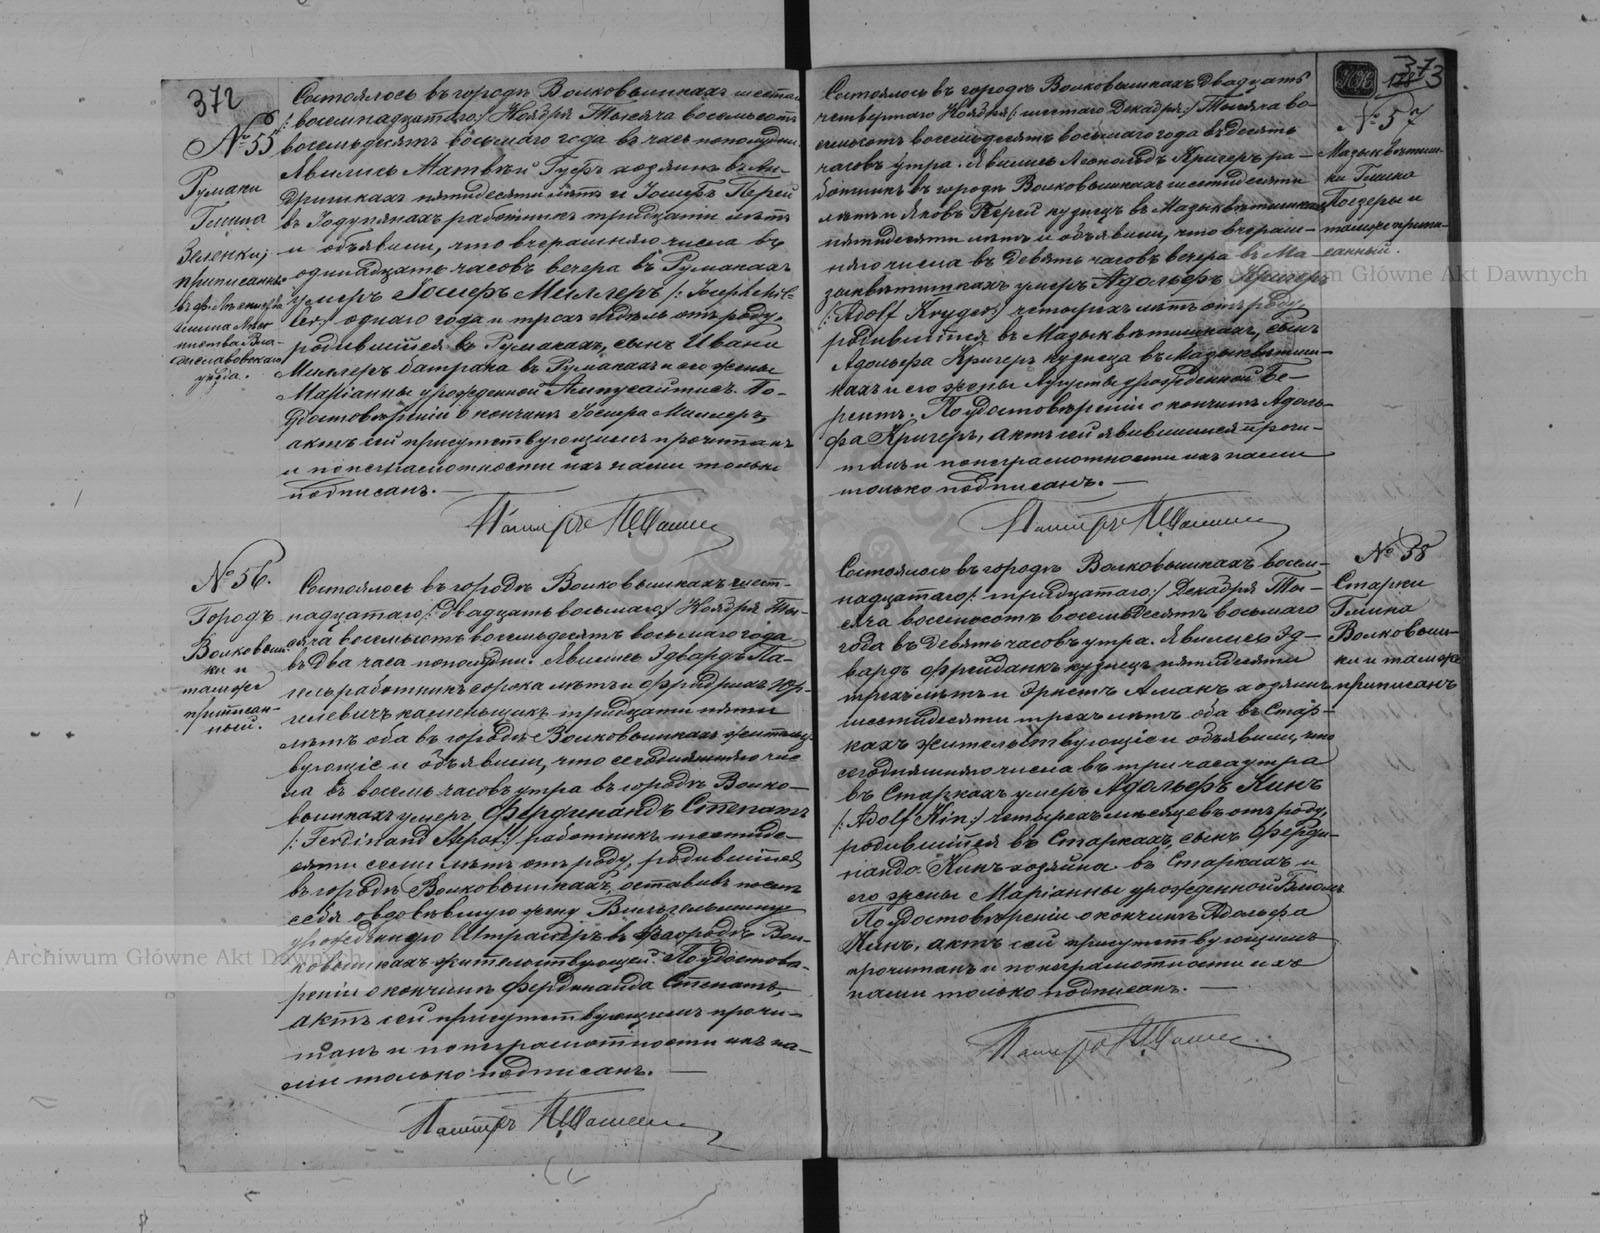 372
№ 55
Румаки
Гмина
Зеленки;
приписанъ
уѣзда.
Состоялось въ городѣ Волковышкахъ шестаго
/: восемнадцатаго :/ Ноября Тысяча восемьсотъ
восемьдесятъ восьмаго года въ часъ пополудни.
Явились Матвѣй хозяинъ въ Ан-
дришкахъ пятидесяти лѣтъ и Іосифъ Перей
въ Годупянахъ работникъ тридцати лѣтъ
и объявили, что вчерашняго числа въ
одинадцать часовъ вечера въ Румакахъ
умеръ Іосифъ Миллеръ /: Josef Mil-
ler :/ одного года и трехъ недѣль отъ роду,
родившійся въ Румакахъ, сынъ Ивана
Миллеръ батрака въ Румакахъ и его жены
Маріанны урожденной По
удостовѣреніи о кончинѣ Іосифа Миллеръ,
актъ сей присутствующимъ прочитанъ
и по неграмотности ихъ нами только
подписанъ. —
Пасторъ
№ 56.
Городъ
Волковыш-
ки и
тамже
приписан-
ный.
Состоялось въ городѣ Волковышкахъ шест-
надцатаго /: двадцать восьмаго :/ Ноября Ты-
сяча восемьсотъ восемьдесятъ восьмаго года
въ два часа пополудни. Явились Эдвардъ Па-
гель работникъ сорока лѣтъ и Фридрихъ Юр-
гилевичъ каменьщикъ тридцати пяти
лѣтъ оба въ городѣ Волковышкахъ жительс-
вующіе и объявили, что сегодняшняго чис
ла въ восемь часовъ утра въ городѣ Волко-
вышкахъ умеръ Фердинандъ Степатъ
/: Ferdinand Stepat :/ работникъ шестиде-
сяти семи лѣтъ отъ роду, родившійся
въ городѣ Волковышкахъ, оставивъ послѣ
себя овдовѣвшую жену Вильгельмину
урожденную въ городѣ Вол-
ковышкахъ жительствующей. По удостовѣ-
реніи о кончинѣ Фердинанда Степатъ,
актъ сей присутствующимъ прочи-
танъ и по неграмотности ихъ на-
ми только подписанъ. —
Пасторъ
373
№ 57
Мазыкветиш-
ки Гмина
и
тамже припи-
санный.
Состоялось въ городѣ Волковышкахъ двадцать
четвертаго Ноября /: шестаго Декабря :/ Тысяча во-
семьсотъ восемьдесятъ восьмаго года въ десять
часовъ утра. Явились Леопольдъ Кригеръ ра-
ботникъ въ городѣ Волковышкахъ шестидесяти
лѣтъ и Яковъ Перей кузнецъ въ Мазыкветишкахъ
пятидесяти лѣтъ и объявили, что вчераш-
няго числа въ девять часовъ вечера въ Ма-
зыкветишкахъ умеръ Адольфъ Кригеръ
/: Adolf Kryger :/ четырехъ лѣтъ отъ роду,
родившійся въ Мазыкветишкахъ, сынъ
Адольфа Кригеръ кузнеца въ Мазыкветиш-
кахъ и его жены Августы урожденной Бе-
рентъ. По удостовѣреніи о кончинѣ Адоль-
фа Кригеръ, актъ сей явившимся прочи-
танъ и по неграмотности ихъ нами
только подписанъ. —
Пасторъ
№ 58
Старки
Гмина
Волковыш-
ки и тамже
приписанъ
Состоялось въ городѣ Волковышкахъ восем-
надцатаго /: тридцатаго :/ Декабря Ты-
сяча восемьсотъ восемьдесятъ восьмаго
года въ девять часовъ утра. Явились Эд-
вардъ Фрейданкъ кузнецъ пятидесяти
трехъ лѣтъ и Эрнстъ Аманъ хозяинъ
шестидесяти трехъ лѣтъ оба въ Стар-
кахъ жительствующіе и объявили, что
сегодняшняго числа въ три часа утра
въ Старкахъ умеръ Адольфъ Кинъ
/: Adolf Kin :/ четырехъ мѣсяцевъ отъ роду,
родившійся въ Старкахъ, сынъ Ферди-
нанда Кинъ хозяина въ Старкахъ и
его жены Маріанны урожденной
По удостовѣреніи о кончинѣ Адольфа
Кинъ, актъ сей присутствующимъ
прочитанъ и по неграмотности ихъ
нами только подписанъ. —
Пасторъ
Archiwum Główne Akt Dawnych
Archiwum Główne Akt Dawnych